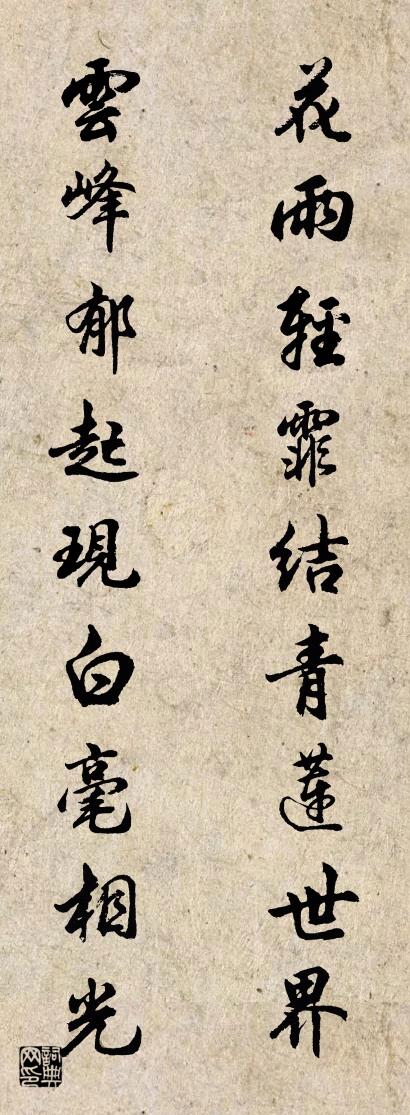 花雨輕霏結青蓮世界
雲峰郁起現白毫相光
詞典网印